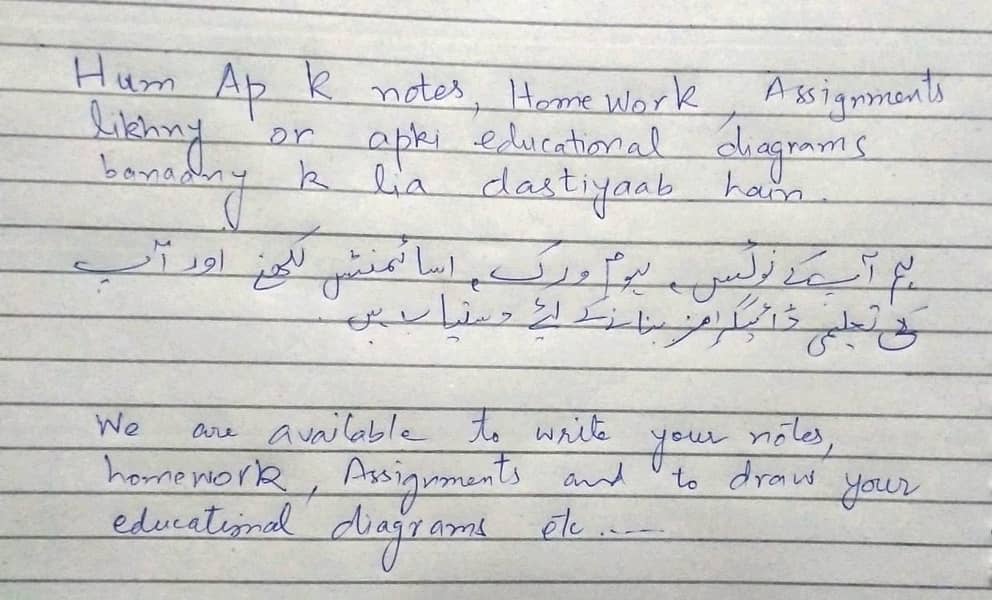 Hum Ap k notes, Home Work, Assignments
likhny or apki educational diagrams
banaany k lia dastiyaab hain.
ہم آپ کے نوٹس، ہوم ورک، اسائمنٹس لکھنے اور آپ
کی تعلیمی ڈائیگرامز بنانے کے لئے دستیاب ہیں.
We are available to write your notes,
homework, Assignments and to draw your
educational diagrams etc.....